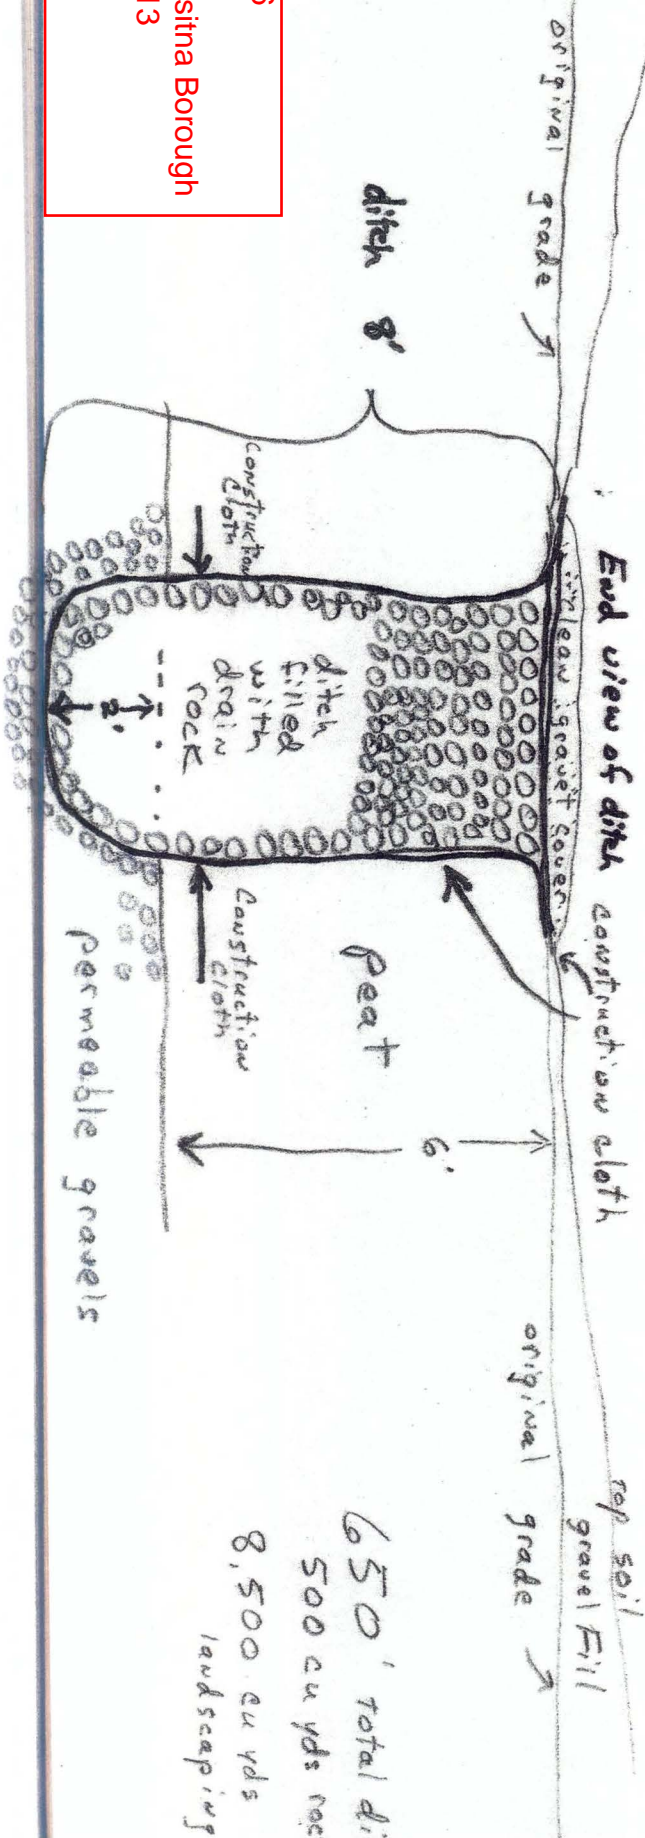 sitna Borough
13
original grade
ditch 8'
End view of ditch
construction cloth
clean gravel cover
Construction
Cloth
ditch
filled
with
drain
rock
2'
Construction
Cloth
peat
6'
permeable gravels
original grade
Top soil
gravel Fill
650' total di
500 cu yds roc
8,500 cu yds
landscaping